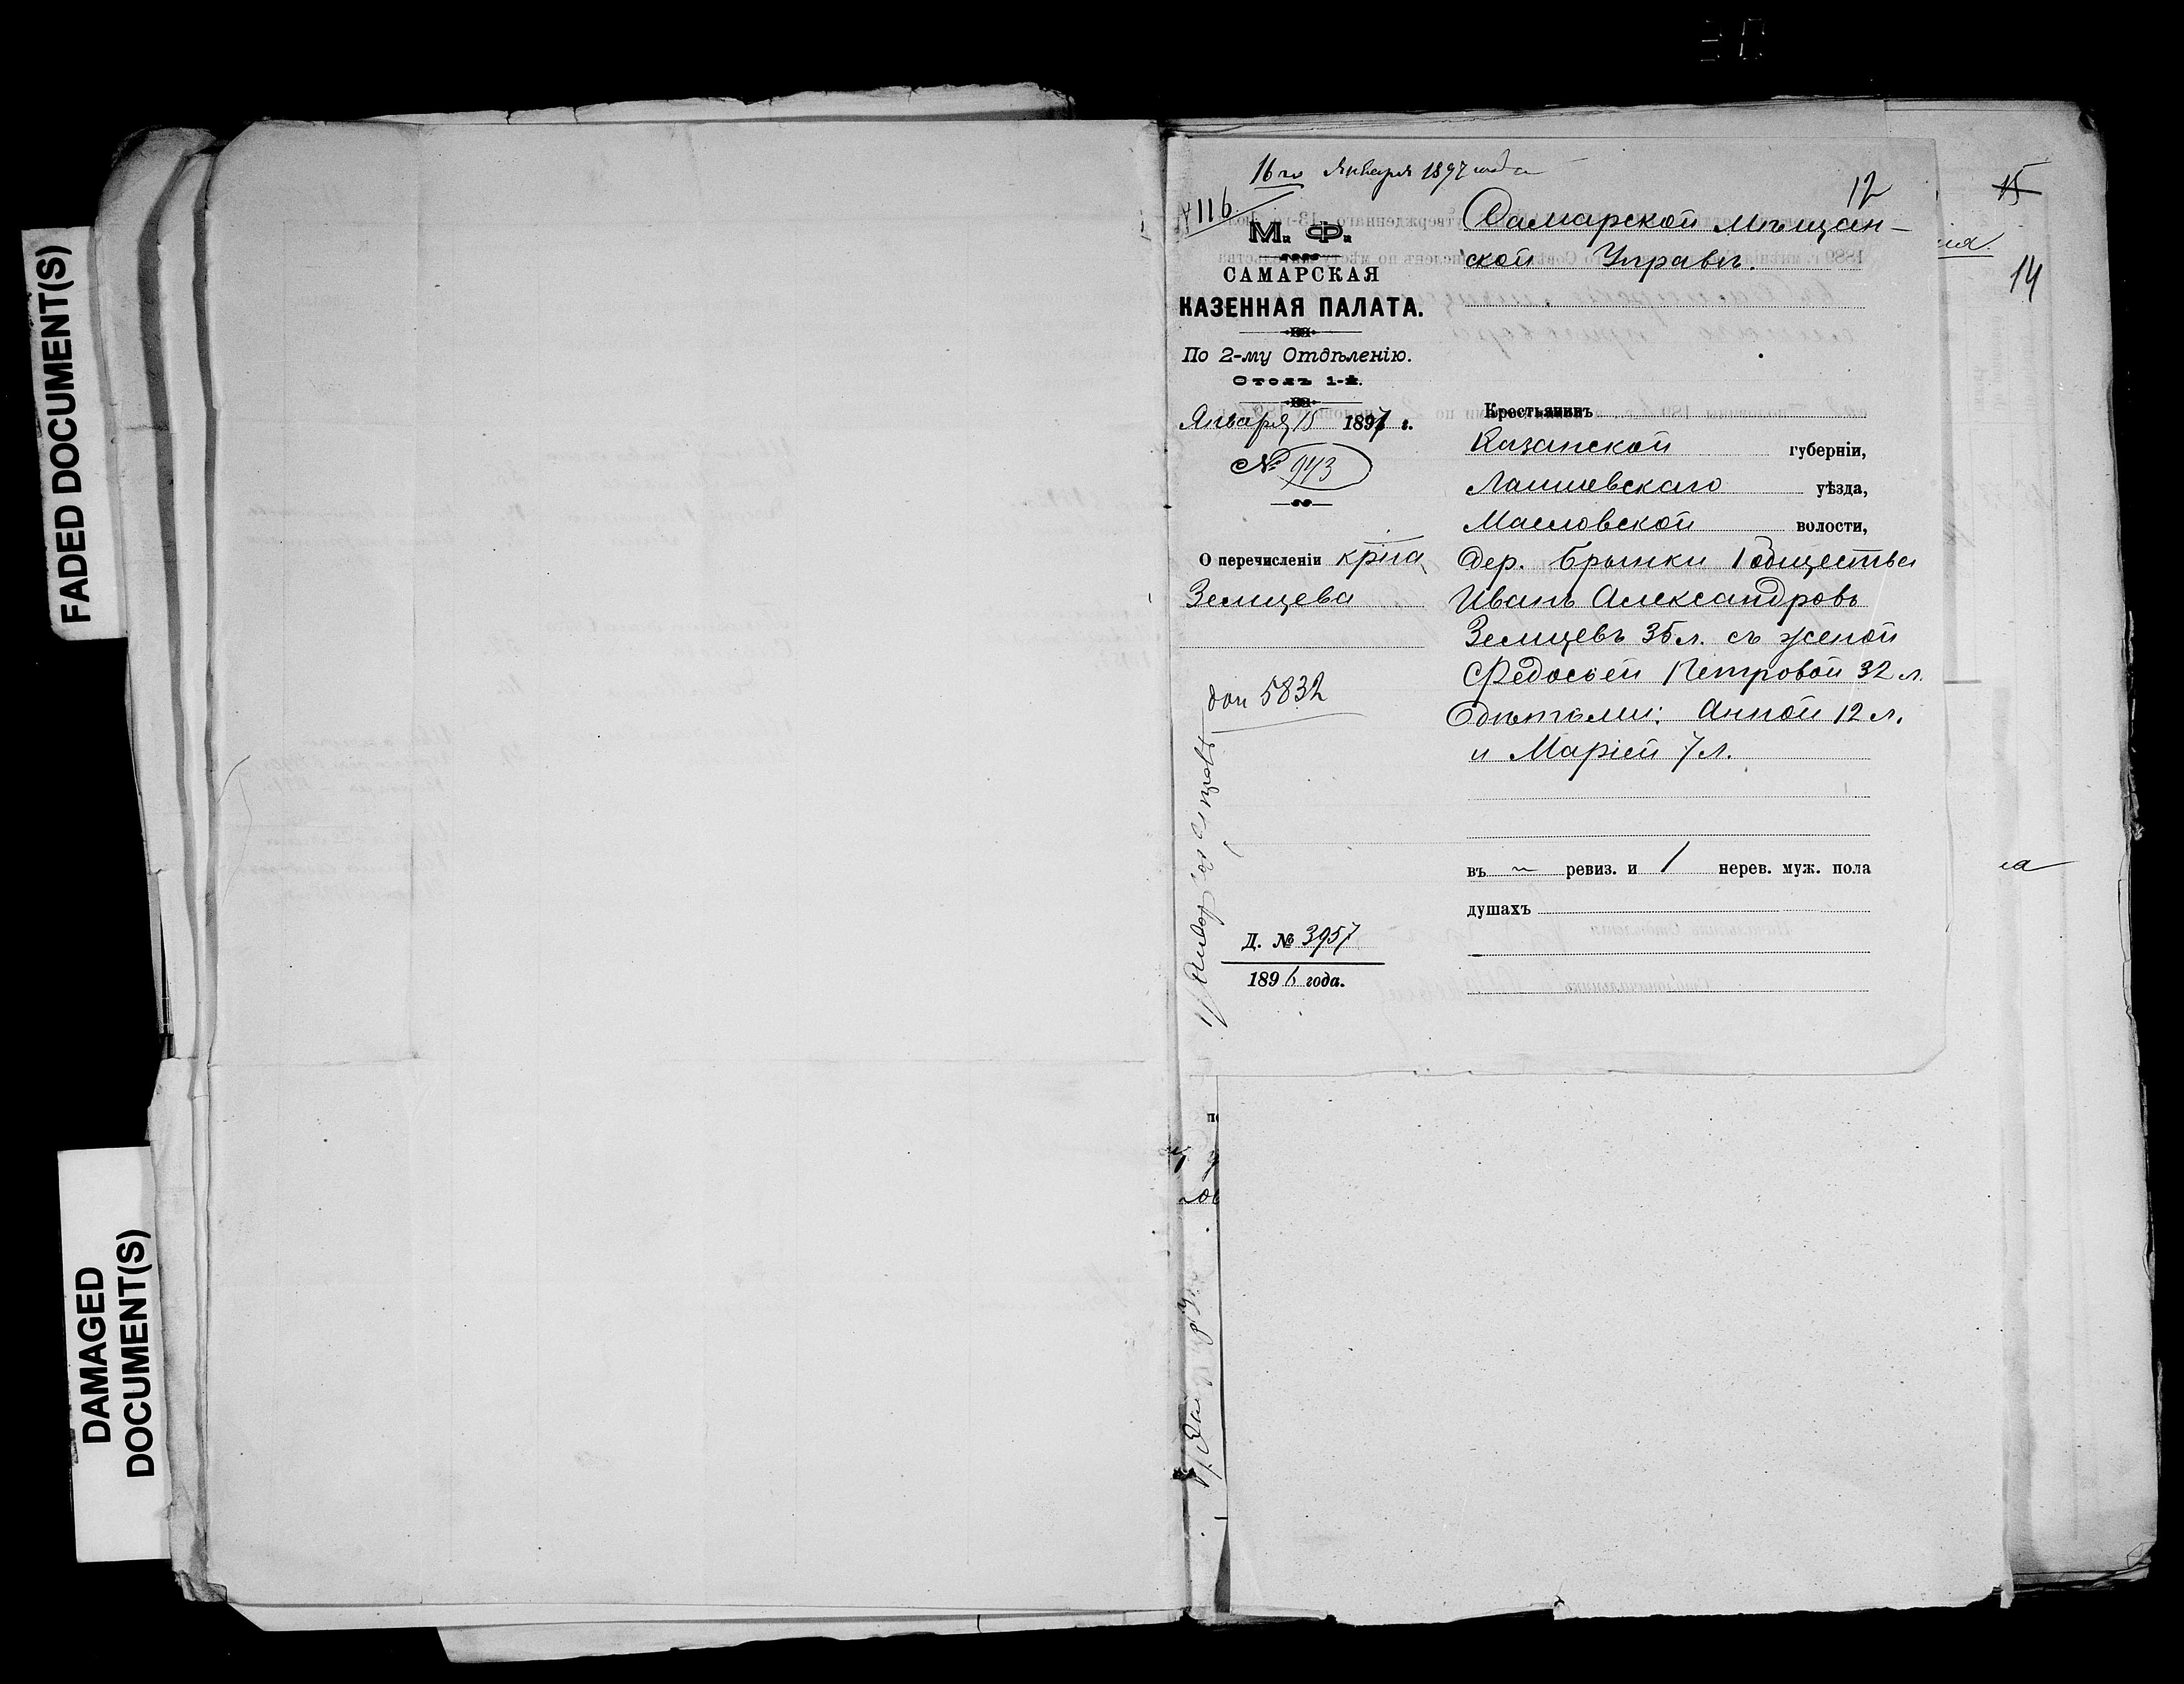 FADED DOCUMENT(S)
DAMAGED
DOCUMENT(S)
16го Января 1897 года
№ 116
М. Ф.
САМАРСКАЯ
КАЗЕННАЯ ПАЛАТА.
По 2-му Отдѣленію.
Столъ 1-й.
Января 15 1897 г.
№ 943
О перечисленіи крна
Земцева
5832
Д. № 3957
1896 года.
12
Самарской Мѣщан-
ской Управѣ.
Крестьянинъ
Казанской губерніи,
Лаишевскаго уѣзда,
Масловской волости,
Дер. Брынки 1 общества
Иванъ Александровъ
Земцевъ 35 л. съ женой
Федосьей Петровой 32 л.
Сдѣтьми: Анной 12 л.
и Маріей 7 л.
въ ~ ревиз. и 1 нерев. муж. пола
душахъ
15
14